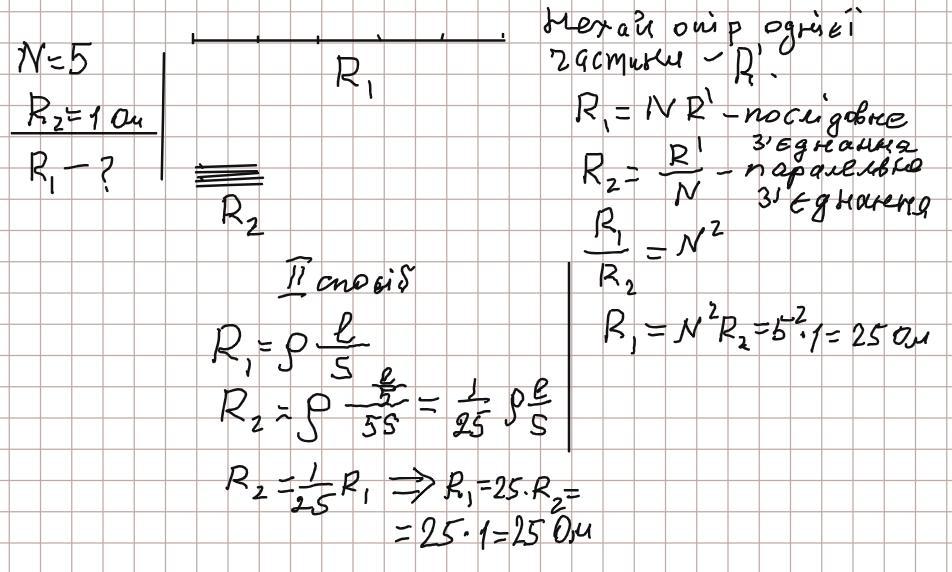 N=5
R₂=1 Ом
R₁ – ?
R₁
R₂
Нехай опір однієї
частини – R'.
R₁ = N R' – послідовне
з'єднання
R₂ = R'/N – паралельне
з'єднання
R₁/R₂ = N²
R₁ = N²R₂ = 5²·1 = 25 Ом
II спосіб
R₁ = ρ l/S
R₂ = ρ (l/5)/(5S) = 1/25 ρ l/S
R₂ = 1/25 R₁ ⇒ R₁ = 25·R₂ =
= 25·1 = 25 Ом